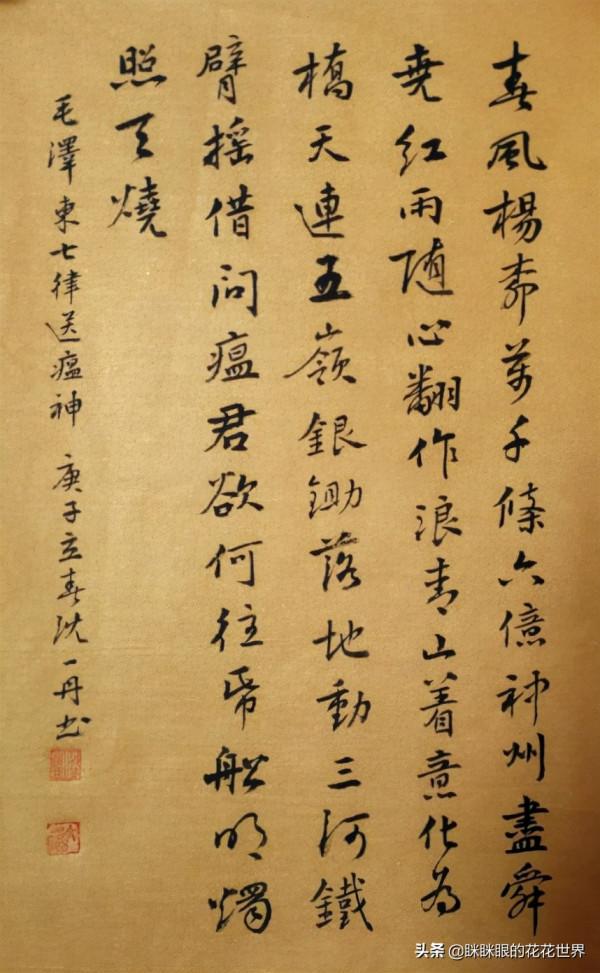 春風楊柳萬千條六億神州盡舜
堯紅雨随心翻作浪青山着意化為
橋天連五嶺銀鋤落地動三河鐵
臂摇借問瘟君欲何往帋船明燭
照天燒
毛澤東七律送瘟神 庚子立春沈一丹书
头条 @眯眯眼的花花世界